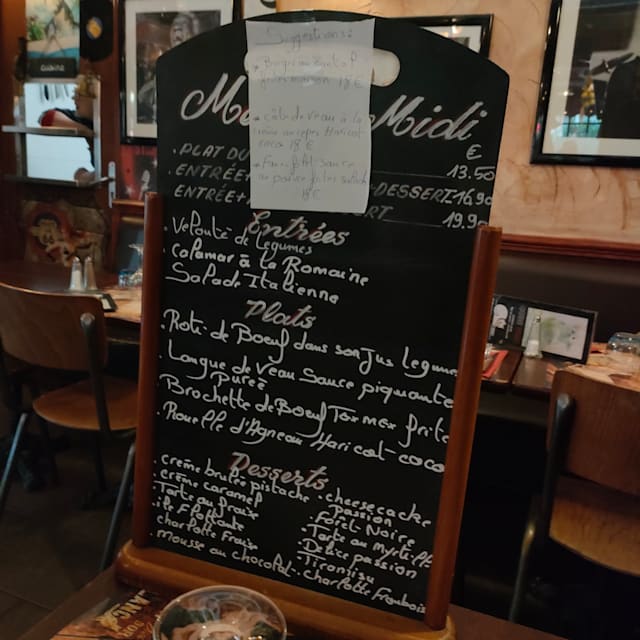 Suggestions:
18 €
côte de veau à la
crème aux cèpes Haricot
coco 18 €
sauce
au poivre
18 €
Midi
€
. PLAT DU 13.50
ENTRÉE+ DESSERT 16.90
ENTRÉE+ 19.9
Entrées
. Velouté de Legumes
. Calamar à la Romaine
. Salade Italienne
Plats
. Roti de Boeuf dans son Jus legume
. Langue de veau Sauce piquante
Pureé
. Brochette de Boeuf frite
. Rouelle d'Agneau Haricot-coco
Desserts
. crème brulée pistache
. crème caramel
. Tarte au fraise
. ile Flottante
. charlotte Fraise
. mousse au chocolat
. cheesecacke
passion
. Foret Noire
. Tarte au myrtille
. Délice passion
. Tiramisu
. charlotte Framboise